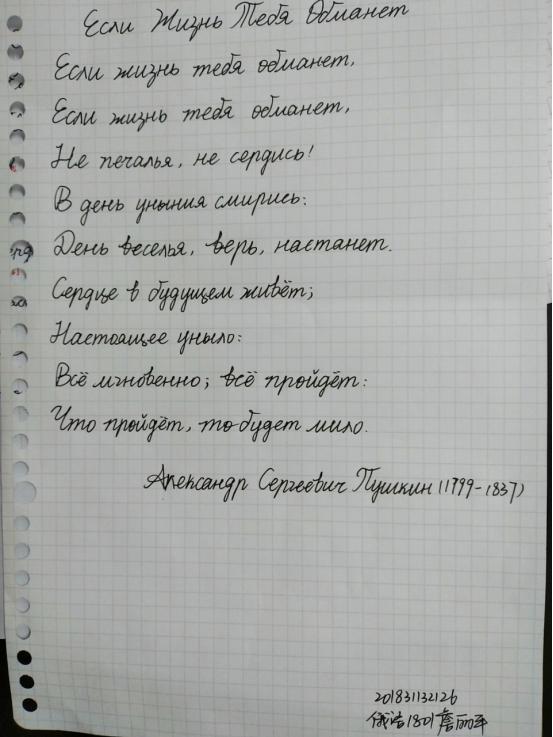 Если Жизнь Тебя Обманет
Если жизнь тебя обманет,
Если жизнь тебя обманет,
Не печалья, не сердись!
В день уныния смирись:
День веселья, верь, настанет.
Сердце в будущем живёт;
Настоящее уныло:
Всё мгновенно; всё пройдёт:
Что пройдёт, то будет мило.
Александр Сергеевич Пушкин (1799-1837)
201831132126
俄语1801 詹丽萍